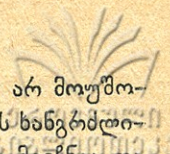 არ მოუშო-
ს ხანგრძლი-